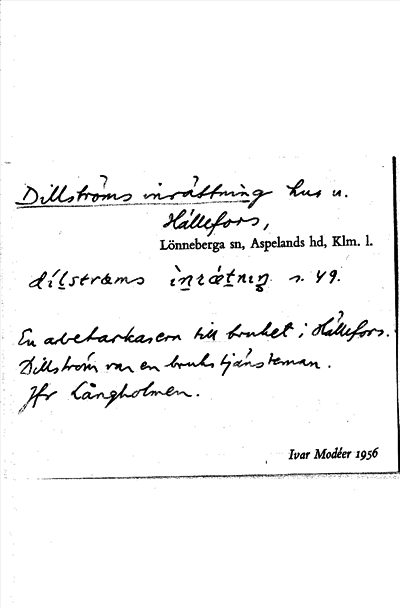 Dillströms inrättning hus u.
Hällefors,
Lönneberga sn, Aspelands hd, Klm. l.
s. 49.
En arbetarkasern till bruket i Hällefors.
Dillström var en brukstjänsteman.
Jfr Långholmen.
Ivar Modéer 1956